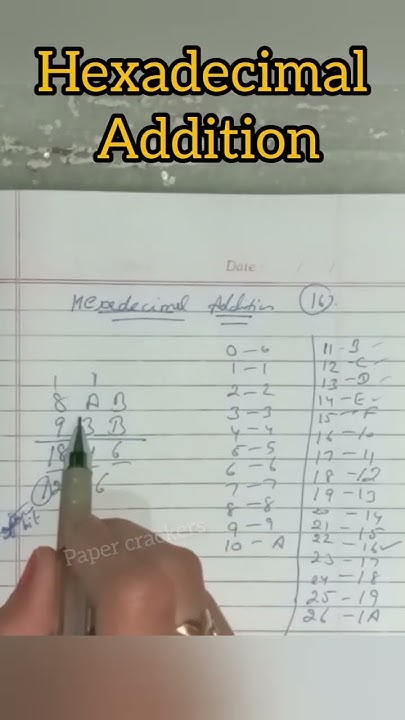 Hexadecimal
Addition
Date : / /
Hexadecimal Addition (16).
1 1
8 A B
9 B B
18 6
12 6
bit
0 - 0
1 - 1
2 - 2
3 - 3
4 - 4
5 - 5
6 - 6
7 - 7
8 - 8
9 - 9
10 - A
11 - B
12 - C
13 - D
14 - E
15 - F
16 - 10
17 - 11
18 - 12
19 - 13
20 - 14
21 - 15
22 - 16
23 - 17
24 - 18
25 - 19
26 - 1A
Paper crackers